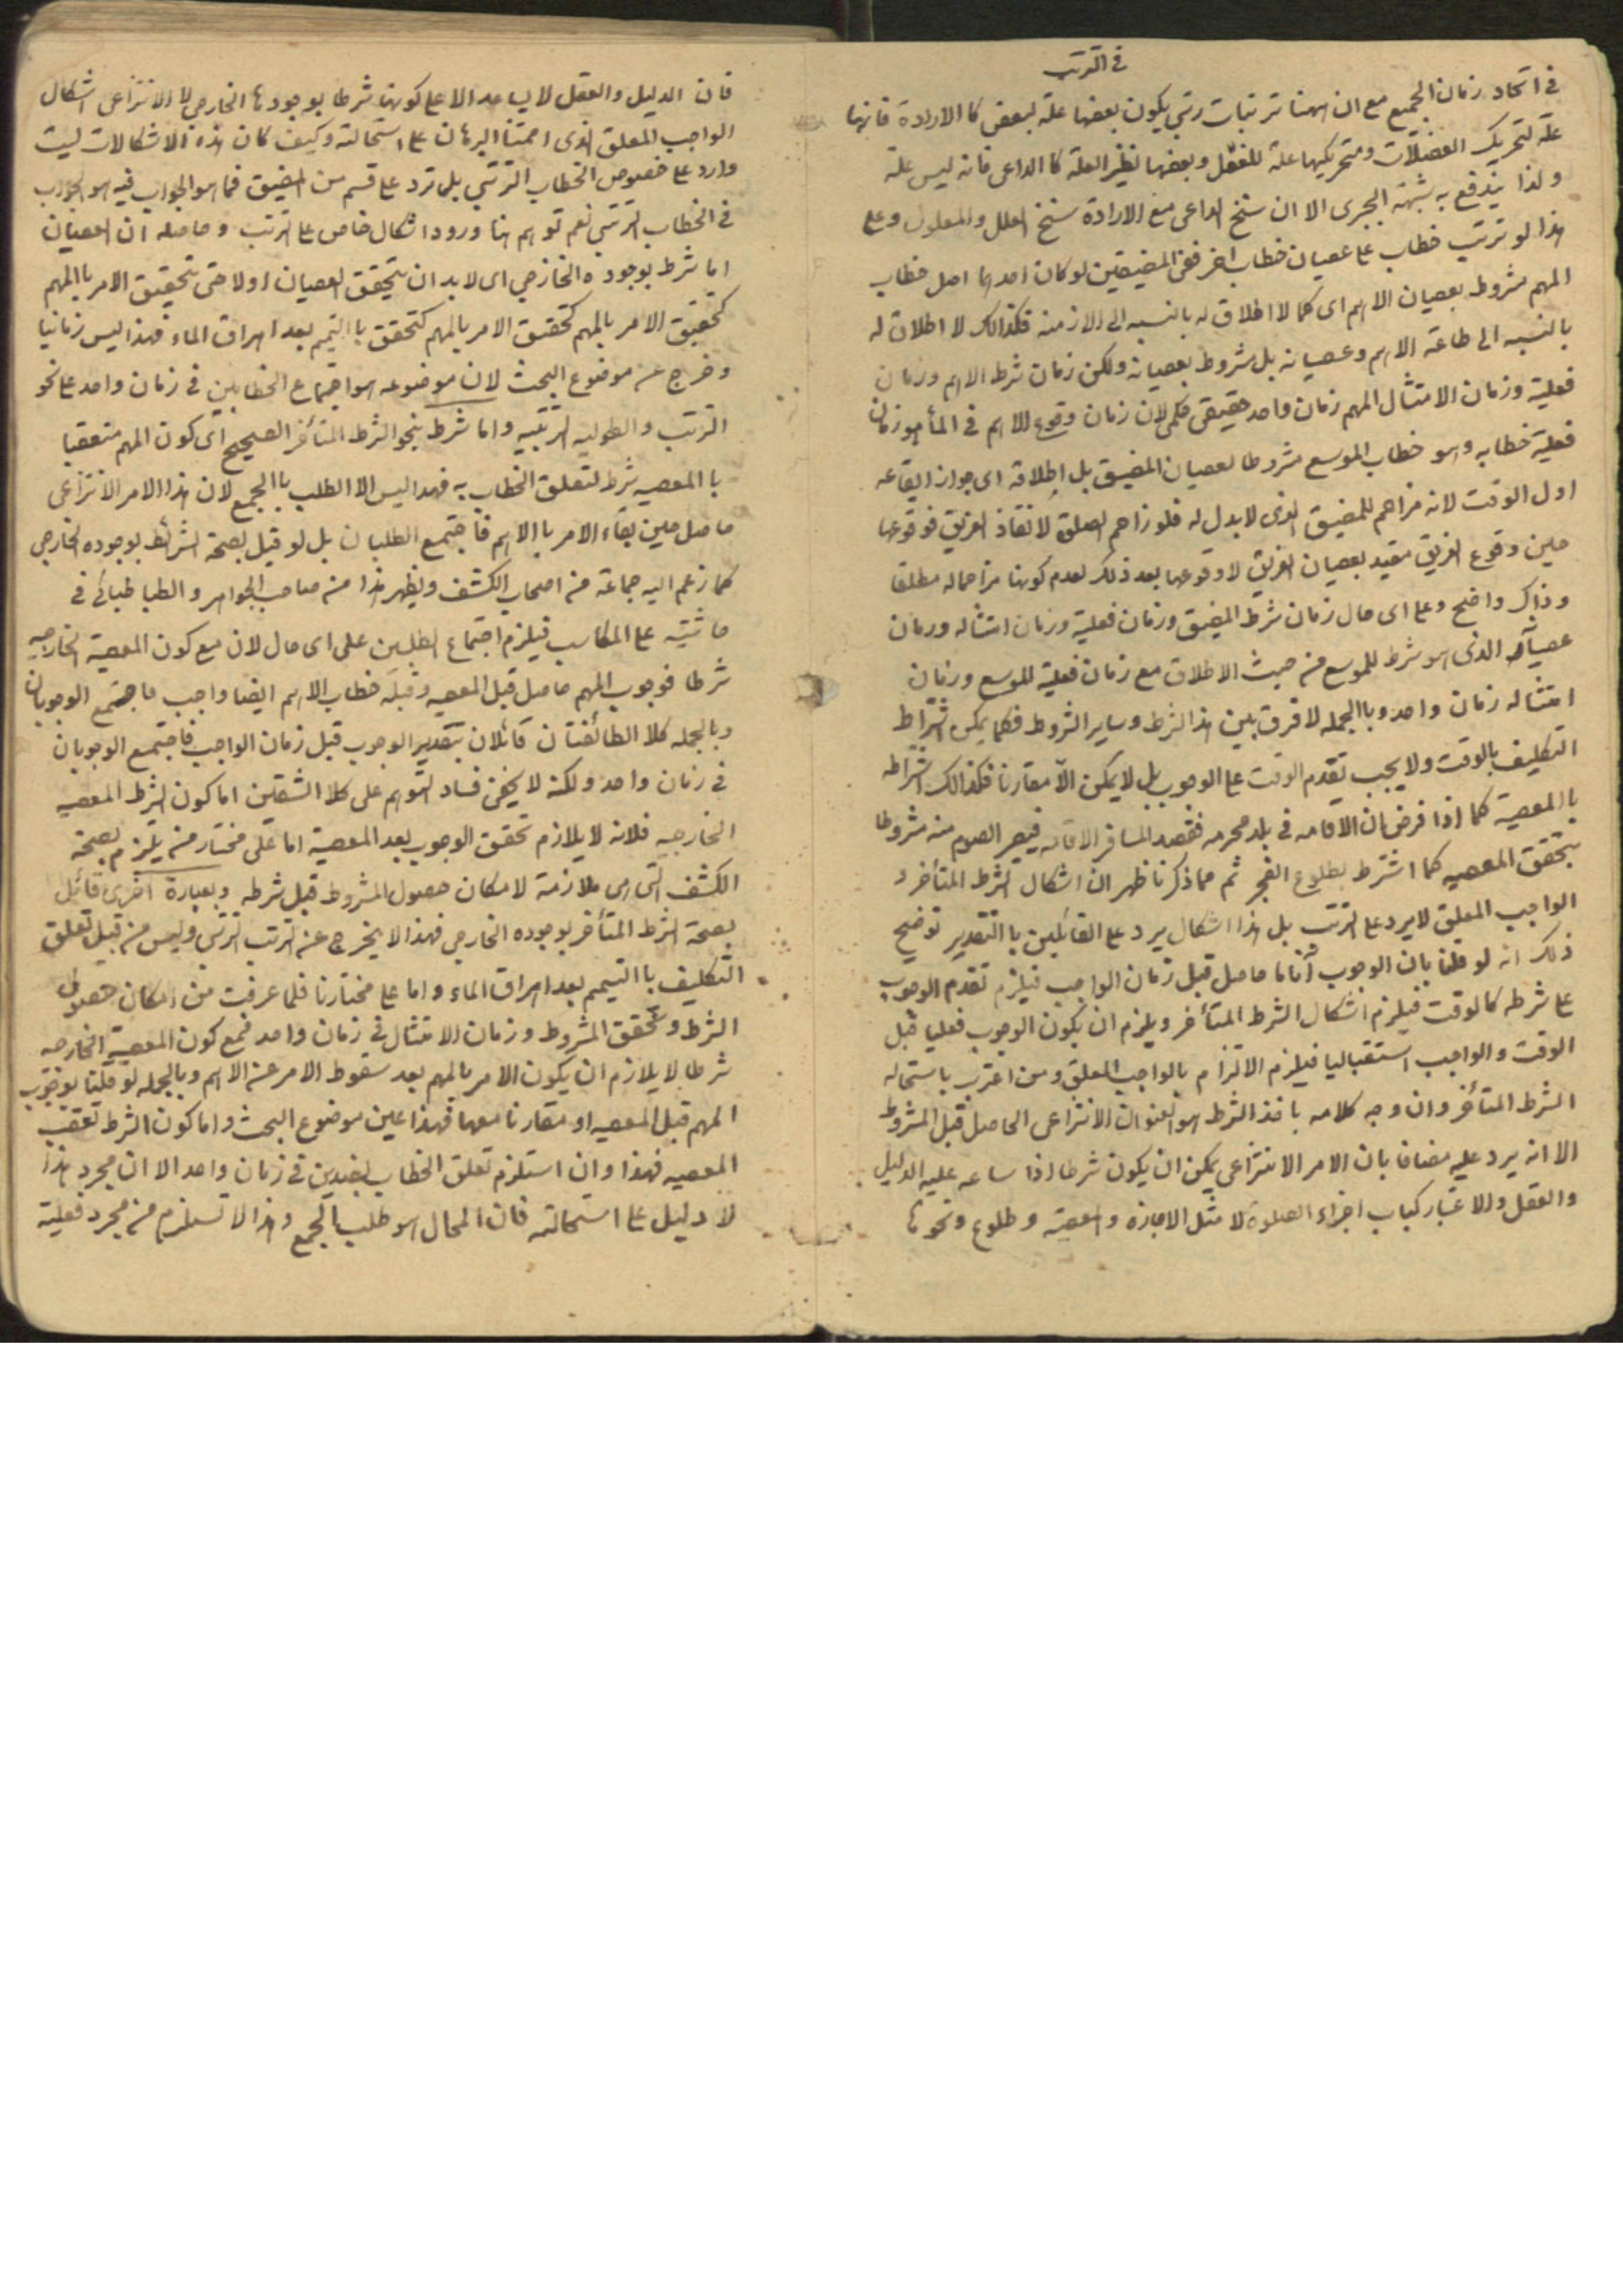 في الترتب
في اتحاد زمان الجميع مع ان ههنا ترتبات رتبي يكون بعضها علة لبعض كا الارادة فانها
علة لتحريك العضلات ومتحريكها علة للفعل وبعضها نظير العلة كا الداعى فانه ليس علة
ولذا يندفع به شبهة الجبرى الا ان سنخ الداعى مع الارادة سنخ العلل والمعلول وعلى
هذا لو ترتب خطاب على عصيان خطاب اخر ففى المضيقين لو كان احدهما اصل خطاب
المهم مشروط بعصيان الاهم اى كما لا اطلاق له بالنسبه الى الازمنه فكذالك لا اطلاق له
بالنسبه الى طاعة الاهم وعصيانه بل مشروط بعصيانه ولكن زمان شرط الاهم وزمان
فعلية وزمان الامتثال المهم زمان واحد حقيقى حكمى لان زمان وقوع الاهم في المأمور زمان
فعلية خطابه وهو خطاب الموسع مشروطا لعصيان المضيق بل اطلاقه اى جواز ايقاعه
اول الوقت لانه مزاحم للمضيق الذى لا بدل له فلو زاحم الصلوة لانقاذ الغريق فوقوعها
حين وقوع الغريق مقيد بعصيان الغريق لا وقوعها بعد ذلك لعدم كونها مزاحماله مطلقا
وذاك واضح وعلى اى حال زمان شرط المضيق وزمان فعلية وزمان امتثاله وزمان
عصيانه الذى هو شرط للموسع من حيث الاطلاق مع زمان فعلية الموسع وزمان
امتثاله زمان واحد وبا الجمله لا فرق بين هذا الشرط وساير الشروط فكما يمكن اشتراط
التكليف بالوقت ولا يجب تقدم الوقت على الوجوب بل لا يمكن الّا مقارنا فكذالك اشتراطه
با المعصية كما اذا فرض ان الاقامه في بلد محرمه فقصد المسافر الاقامه فيصير الصوم منه مشروطا
بتحقق المعصيه كما اشترط بطلوع الفجر ثم مما ذكرنا ظهر ان اشكال الشرط المتأخر و
الواجب المعلق لا يرد على الترتب بل هذا اشكال يرد على القائلين با التقدير توضيح
ذلك انه لو قلنا بان الوجوب آناما حاصل قبل زمان الواجب فيلزم تقدم الوجوب
على شرطه كالوقت فيلزم اشكال الشرط المتأخر ويلزم ان يكون الوجوب فعليا قبل
الوقت والواجب استقباليا فيلزم الالتزام بالواجب المعلق ومن اعترف باستحاله
الشرط المتأخر وان وجه كلامه باخذ الشرط هو العنوان الانتزاعى الحاصل قبل المشروط
الا انه يرد عليه مضافا بان الامر الانتزاعى يمكن ان يكون شرطا اذا ساعه عليه الدليل
والعقل والاعتبار كباب اجزاء الصلوة لا مثل الاجازه والمعصية وطلوع ونحوها
فان الدليل والعقل لا يساعد الا على كونها شرطا بوجودها الخارجى لا الانتزاعى اشكال
الواجب المعلق الذى اقمنا البرهان على استحالته وكيف كان هذه الاشكالات ليت
وارد على خصوص الخطاب الترتبي بل ترد على قسم من المضيق فما هو الجواب فيه هو الجواب
في الخطاب الترتبى نعم توهم هنا ورود اشكال خاص على الترتب وحاصله ان العصيان
اما شرط بوجوده الخارجي اى لابد ان يتحقق العصيان اولا حتى يتحقيق الامر با المهم
كتحقيق الامر بالمهم كتحقيق الامر بالمهم كتحقق با التيمم بعد اهراق الماء فهذا ليس زمانيا
وخرج عن موضوع البحث لان موضوعه هو اجتماع الخطابين في زمان واحد على نحو
الترتب والطوليه الترتبيه واما شرط بنحو الشرط المتأخر الصحيح اى كون المهم متعقبا
با المعصيه شرط لتعلق الخطاب به فهدا ليس الا الطلب با الجمع لان هذا الامر الانتزاعى
حاصل حين بقاء الامر با الاهم فاجتمع الطلبان بل لو قيل بصحة الشرائط بوجوده الخارجى
كما زعم اليه جماعة من اصحاب الكشف ويظهر هذا من صاحب الجواهر والطباطبائى في
حاشيته على المكاسب فيلزم اجتماع الطلبين على اى حال لان مع كون المعصية الخارجيه
شرطا فوجوب المهم حاصل قبل المعصيه وقبله خطاب الاهم ايضا واجب فاجتمع الوجوبان
وبالجمله كلا الطائفتان قائلان بتقدير الوجوب قبل زمان الواجب فاجتمع الوجوبان
في زمان واحد ولكنه لا يخفى فساد التوهم على كلا الشقين اما كون الشرط المعصيه
الخارجيه فلانه لا يلازم تحقق الوجوب بعد المعصية اما على مختار من يلتزم بصحة
الكشف التى هى ملازمة لامكان حصول المشروط قبل شرطه وبعبارة اخرى قائل
بصحة الشرط المتأخر بوجوده الخارجى فهذا لا يخرج عن الترتب الترتبى وليس من قبل تعلق
التكليف با التيمم بعد اهراق الماء واما على مختارنا فلما عرفت من امكان حصول
الشرط وتحقق المشروط وزمان الامتثال في زمان واحد فمع كون المعصية الخارجه
شرطا لا يلازم ان يكون الامر بالمهم بعد سقوط الامر عن الاهم وبالجمله لو قلنا بوجوب
المهم قبل المعصيه او مقارنا معها فهذا عين موضوع البحث واما كون الشرط تعقب
المعصيه فهذا وان استلزم تعلق الخطاب بضدين في زمان واحد الا ان مجرد هذا
لا دليل على استحالته فان المحال هو طلب الجمع وهذا لا تستلزم من مجرد فعلية